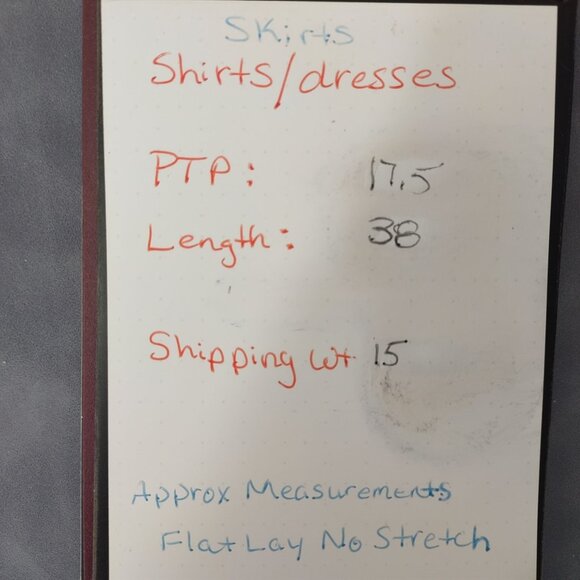 Skirts
Shirts/dresses
PTP: 17.5
Length: 38
Shipping Wt 15
Approx Measurements
Flat Lay No Stretch